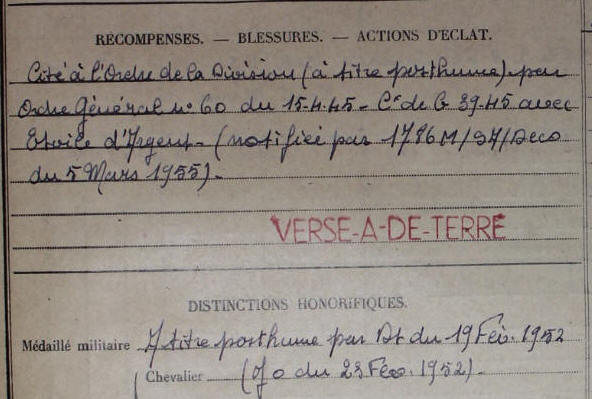 RÉCOMPENSES. — BLESSURES. — ACTIONS D'ÉCLAT.
Cité à l'Ordre de la Division (à titre posthume) par
Ordre Général n° 60 du 15.4.45 - Cx de G 39.45 avec
Etoile d'Argent - (notifiée par 1786 M/SD/Deco
du 5 Mars 1955) -
VERSE-A-DE-TERRE
DISTINCTIONS HONORIFIQUES.
Médaillé militaire A titre posthume par Dt du 19 Fév. 1952
Chevalier (J O du 23 Fév. 1952) -